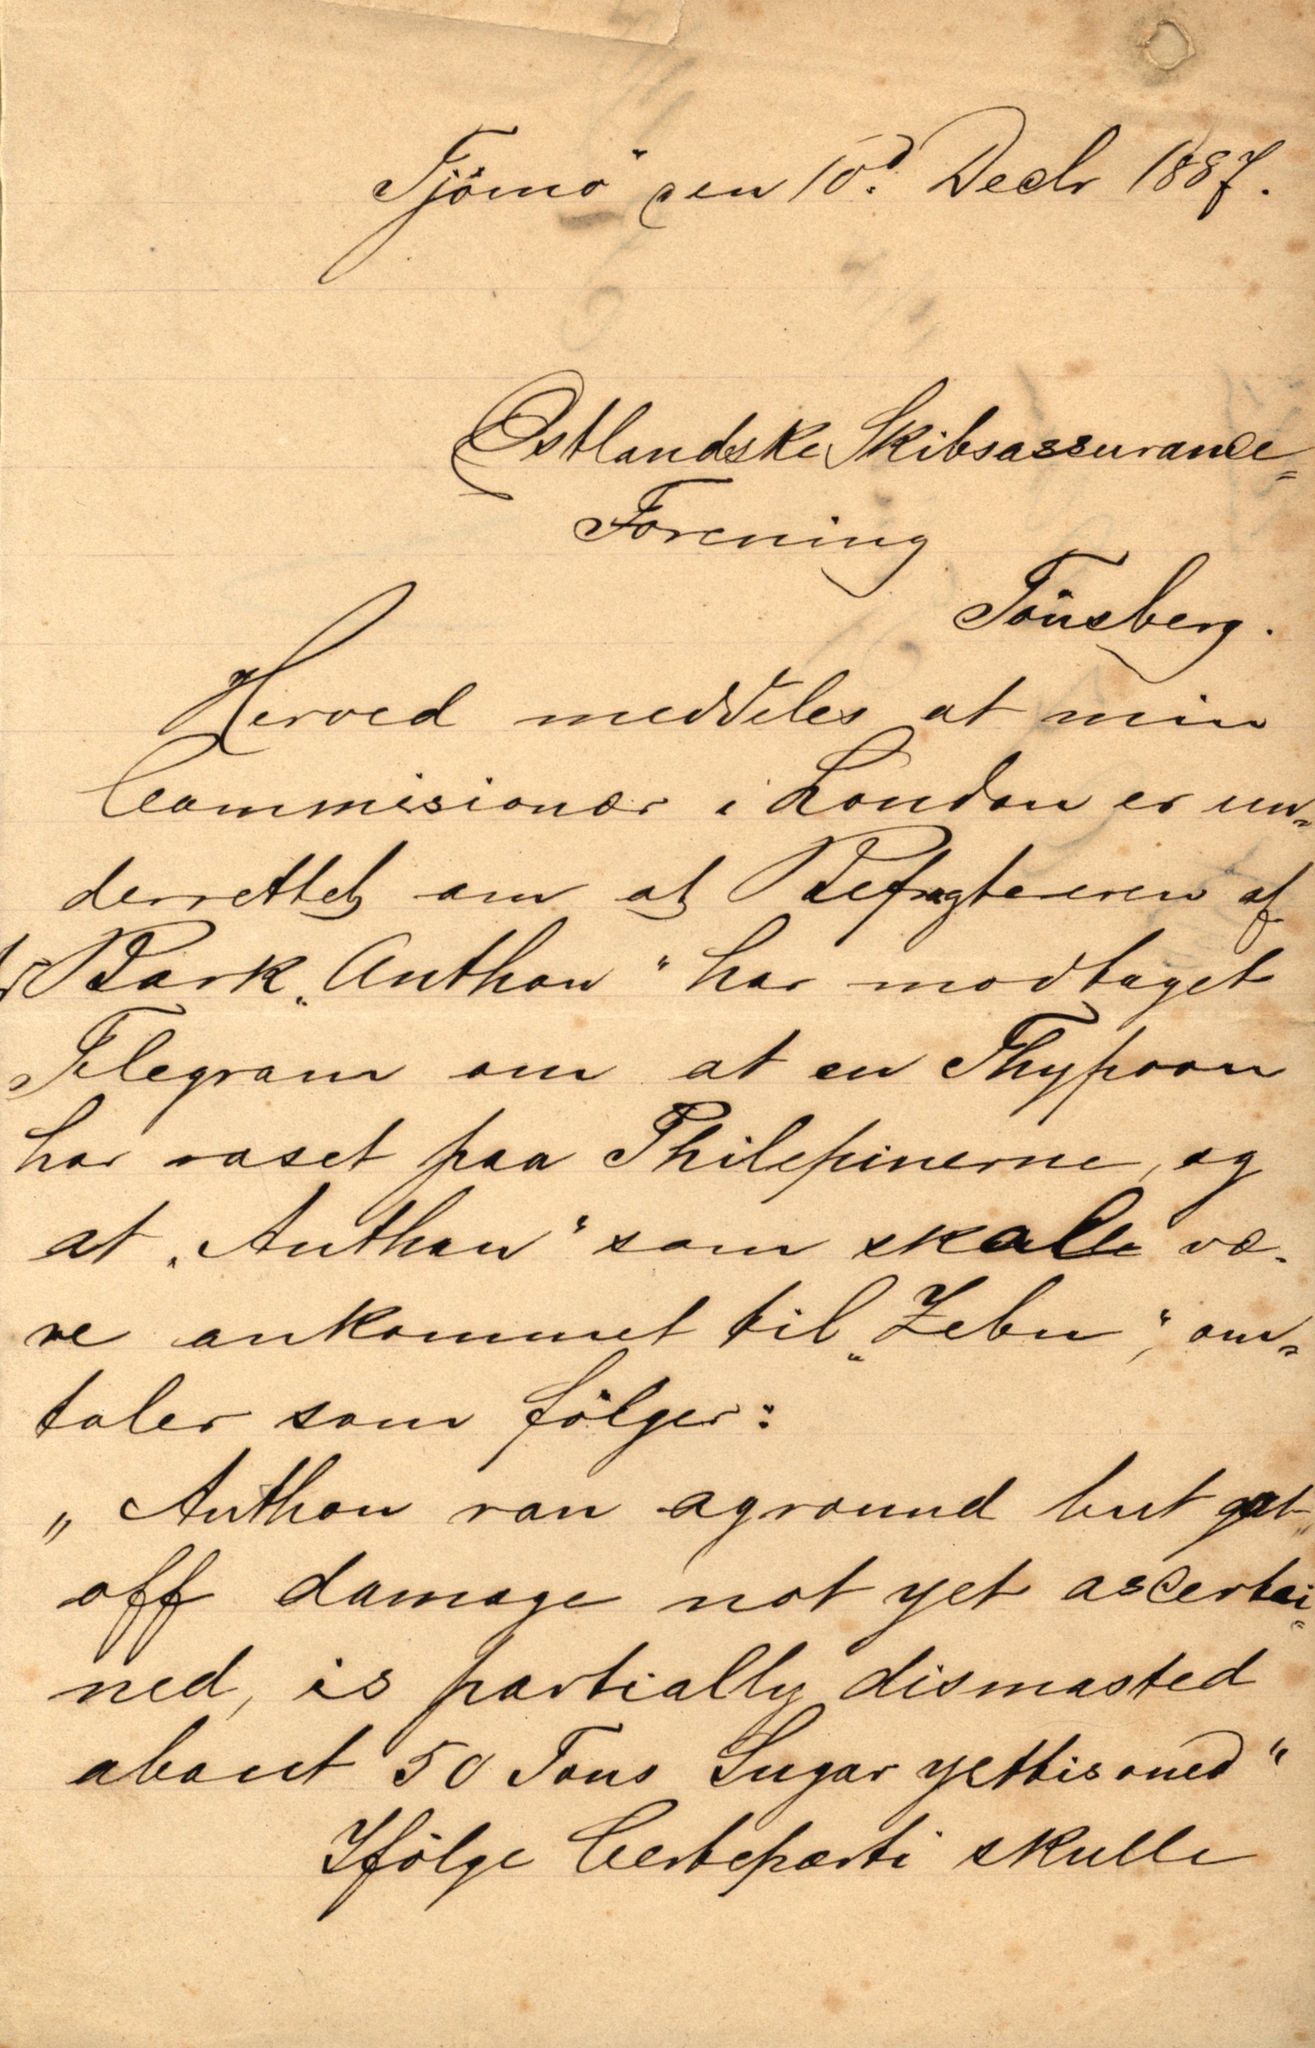 Tjömö den 10d. Decbr 1887.
Østlandske Skibsassurance-
Forening
Tönsberg.
Herved meddeles at min
Commisionær i London er un-
derrettet om at Befragteren af
Bark "Anthon" har modtaget
Telegram om at en Thypoon
har raset paa Philepinerne, og
at "Anthon" som skulle væ-
re ankommet til "Zebu", om-
taler som fölger:
"Anthon ran aground but got
off damage not yet ascertai-
ned, is partially dismasted
about 50 Tons Sugar
Ifölge Certeparti skulle